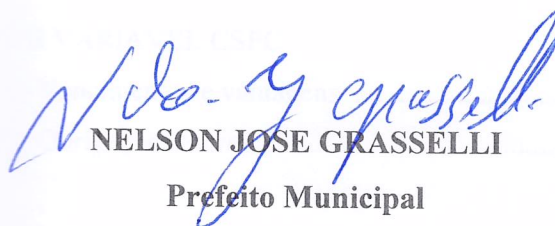 NELSON JOSE GRASSELLI
Prefeito Municipal